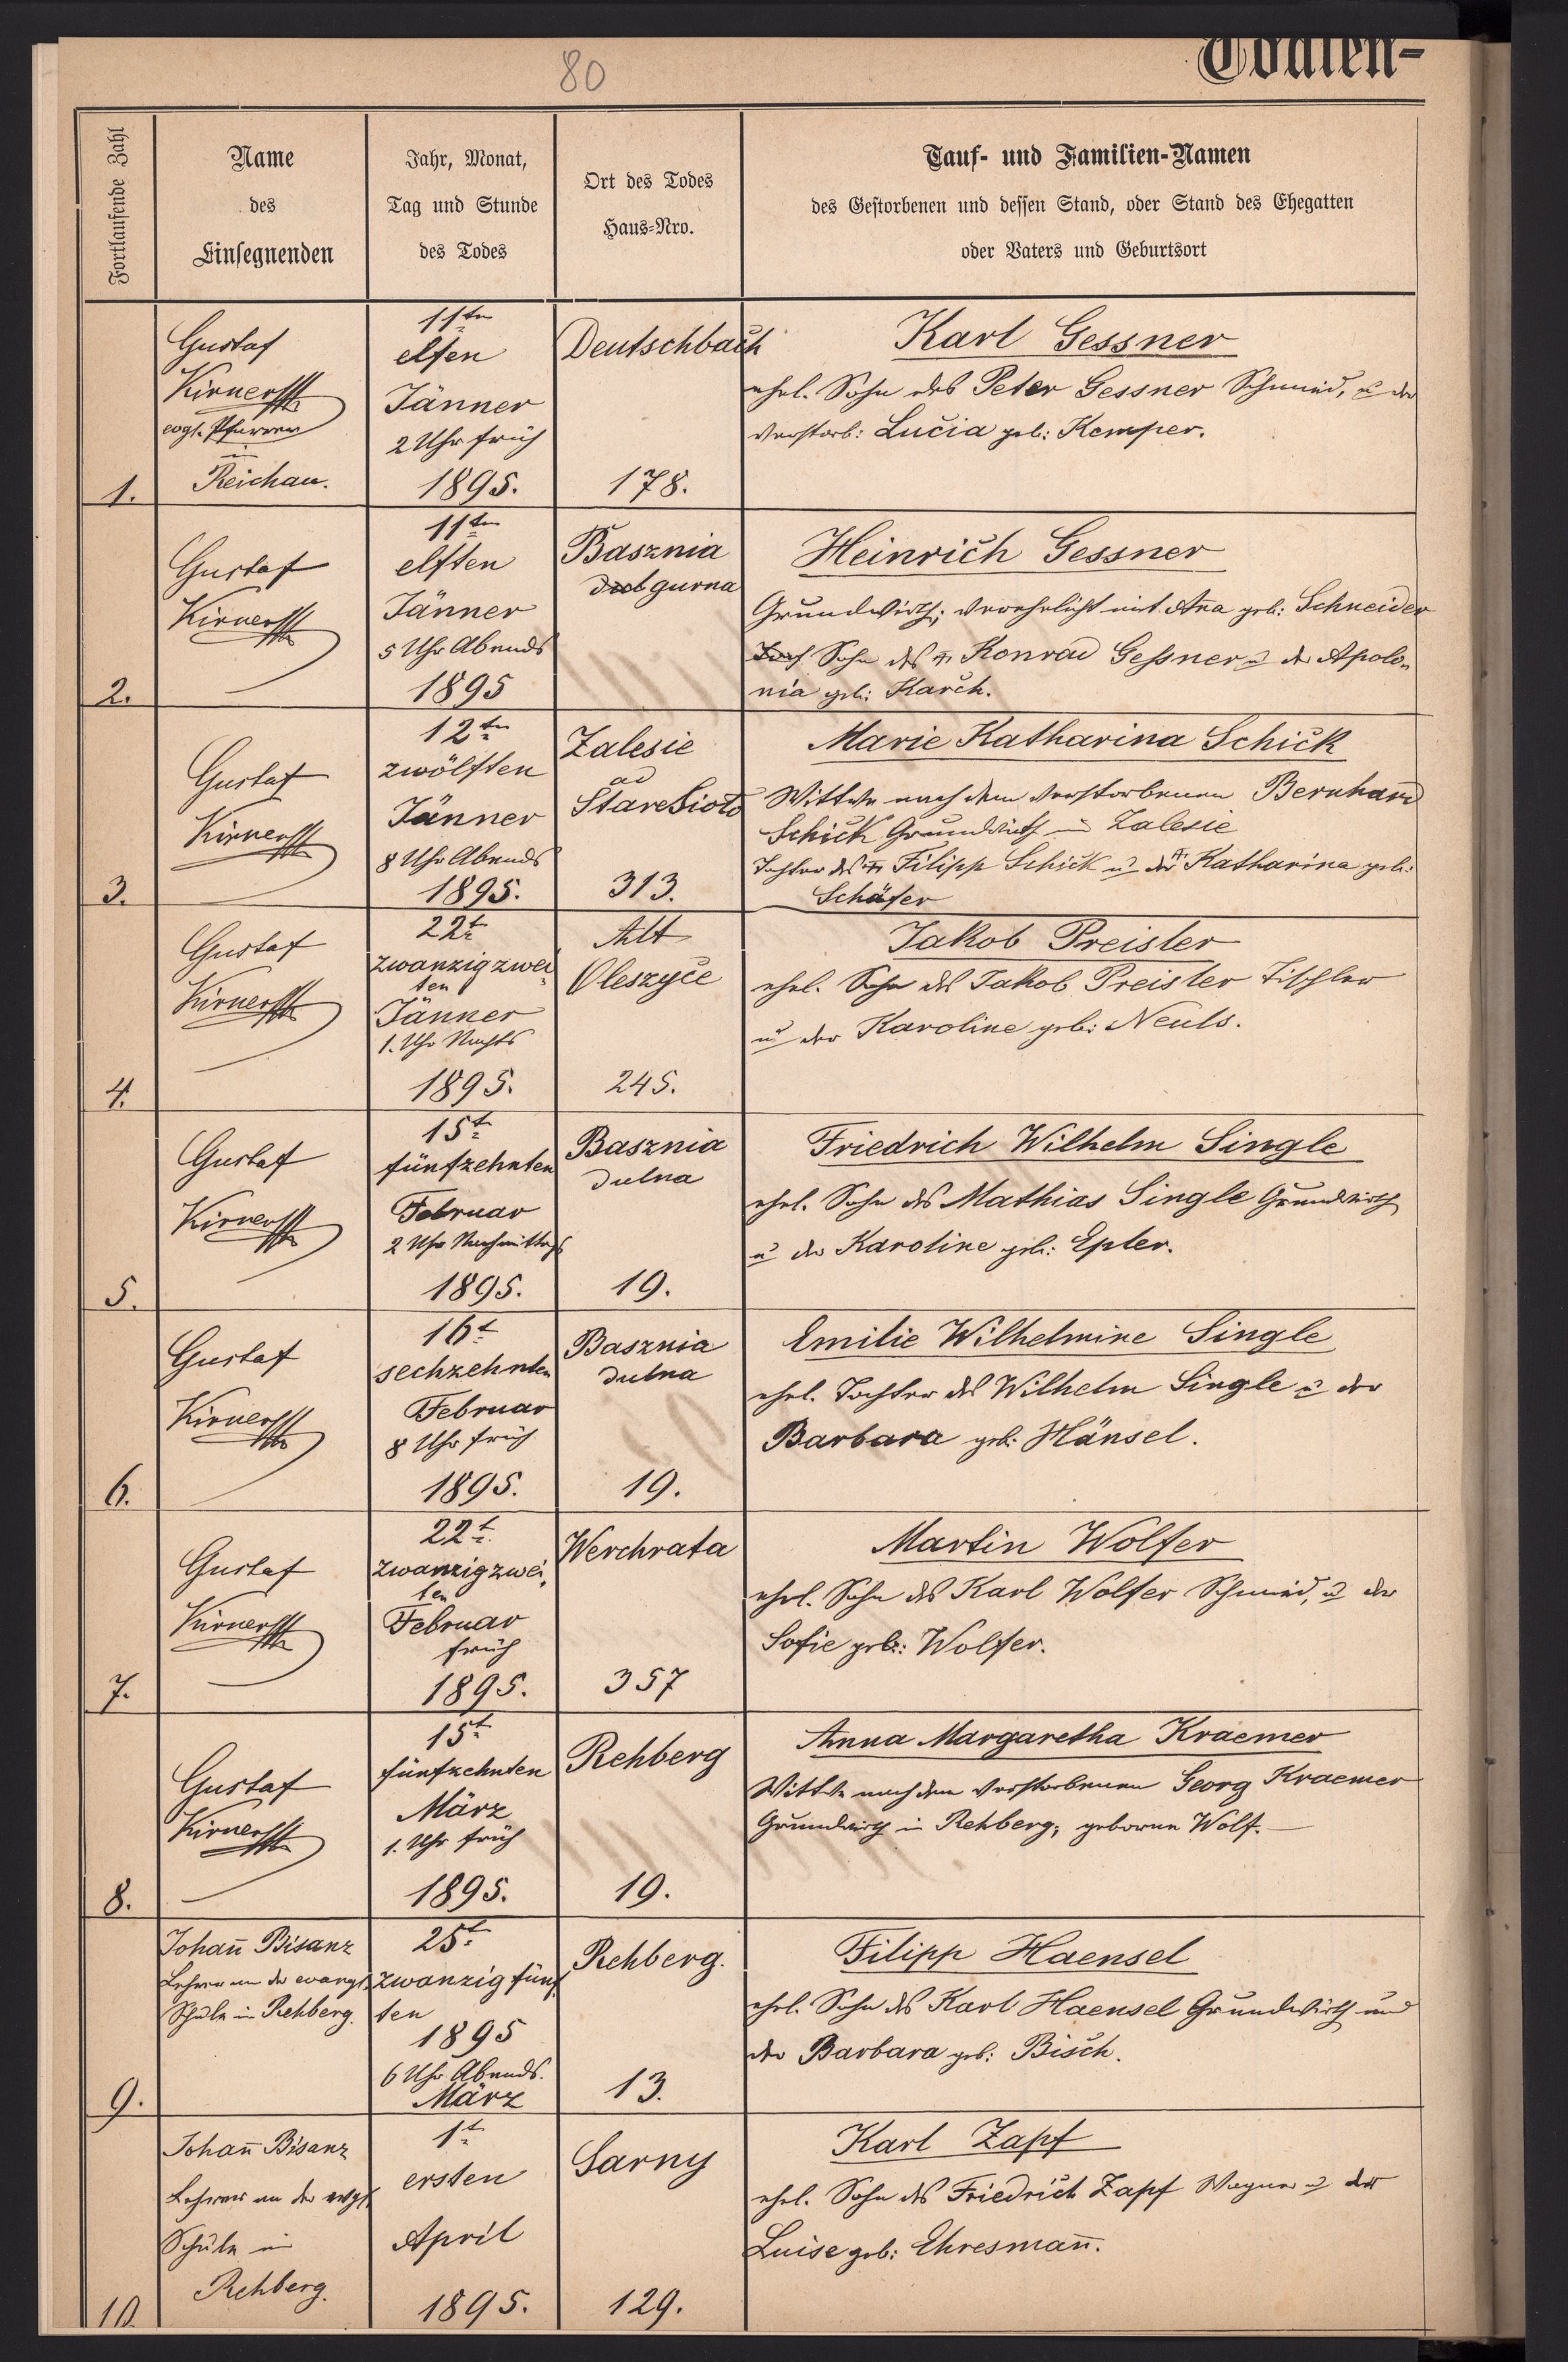 80
Todten-
Fortlaufende Zahl
Name
des
Einsegnenden
Jahr, Monat,
Tag und Stunde
des Todes
Ort des Todes
Haus-Nro.
Tauf- und Familien-Namen
des Gestorbenen und dessen Stand, oder Stand des Ehegatten
oder Vaters und Geburtsort
1.
Gustaf
Kirner
evgl. Pfarrer
in
Reichau.
11ten
elften
Jänner
2 Uhr früh
1895.
Deutschbach
178.
Karl Gessner
ehel. Sohn des Peter Gessner Schmied, u der
verstorb: Lucia geb: Kemper.
2.
Gustaf
Kirner
11ten
elften
Jänner
5 Uhr Abends
1895
Basznia
gurna
Heinrich Gessner
Grundwirth; verehelicht mit Ana geb: Schneider
Sohn des Konrad Geßner u der Apolo-
nia geb: Karch.
3.
Gustaf
Kirner
12ten
zwölften
Jänner
8 Uhr Abends
1895.
Zalesie
ad
Stare Sioło
313.
Marie Katharina Schick
Wittwe nach dem verstorbenen Bernhard
Schick Grundwirth in Zalesie
Tochter des Filipp Schick u der Katharina geb:
Schäfer
4.
Gustaf
Kirner
22t
zwanzigzwei
ten
Jänner
1. Uhr Nachts
1895.
Alt
Oleszyce
245.
Jakob Preisler
ehel. Sohn des Jakob Preisler Tischler
u der Karoline geb: Neuls.
5.
Gustaf
Kirner
15t
fünfzehnten
Februar
2 Uhr Nachmittags
1895.
Basznia
dulna
19.
Friedrich Wilhelm Single
ehel. Sohn des Mathias Single Grundwirth
u der Karoline geb: Epler.
6.
Gustaf
Kirner
16t
sechzehnten
Februar
8 Uhr früh
1895.
Basznia
dulna
19.
Emilie Wilhelmine Single
ehel. Tochter des Wilhelm Single u der
Barbara geb: Hänsel.
7.
Gustaf
Kirner
22t
zwanzigzwei,
ten
Februar
früh
1895.
Werchrata
357
Martin Wolfer
ehel. Sohn des Karl Wolfer Schmied, u der
Sofie geb: Wolfer.
8.
Gustaf
Kirner
15t
fünfzehnten
März
1. Uhr früh
1895.
Rehberg
19.
Anna Margaretha Kraemer
Wittwe nach dem verstorbenen Georg Kraemer
Grundwirth in Rehberg, geborene Wolf.
9.
Johañ Bisanz
Lehrer an der evangl.
Schule in Rehberg.
25t
zwanzig fünf
ten
1895
6 Uhr Abends.
März
Rehberg.
13.
Filipp Haensel
ehel. Sohn des Karl Haensel Grundwirth und
der Barbara geb: Bisch.
10
Johañ Bisanz
Lehrer an der evgl.
Schule in
Rehberg.
1t
ersten
April
1895.
Sarny
129.
Karl Zapf
ehel. Sohn des Friedrich Zapf Wagner u der
Luise geb: Ehresmañ.